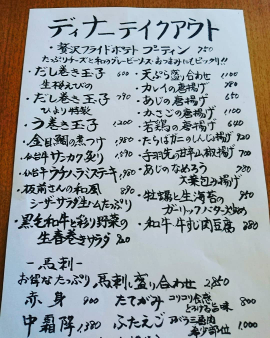 ディナーテイクアウト
・贅沢フライドポテト プーティン 750
たっぷりチーズと和のグレービーソース おつまみにもピッタリ!!
・だし巻き玉子 600
生桜えびの
・だし巻き玉子 790
・う巻き玉子 1200
・金目鯛の煮つけ 1980
・仙台牛サンカク炙り 1590
・仙台牛ウチヒラミステーキ 1980
・板前さんの和風 890
シーザーサラダ生ハムたっぷり
・黒毛和牛と彩り野菜の
生春巻きサラダ 800
・天ぷら盛り合わせ 1100
・カレイの唐揚げ 980
・あじの唐揚げ 650
・かさごの唐揚げ 1100
・若鶏の唐揚げ 640
・たらばガニのしんじょ揚げ 920
・手羽先の甘辛山椒揚げ 700
・あじのなめろう 780
大葉包み揚げ
・牡蠣と生海苔の
ガーリックバター炒め
・和牛 牛すじ肉豆腐 880
-馬刺-
お得なたっぷり 馬刺し盛り合わせ 2,850
赤身 900
たてがみ コリコリ食感
とろける旨味 800
中霜降 1,380
ふたえご
希少部位 1,000